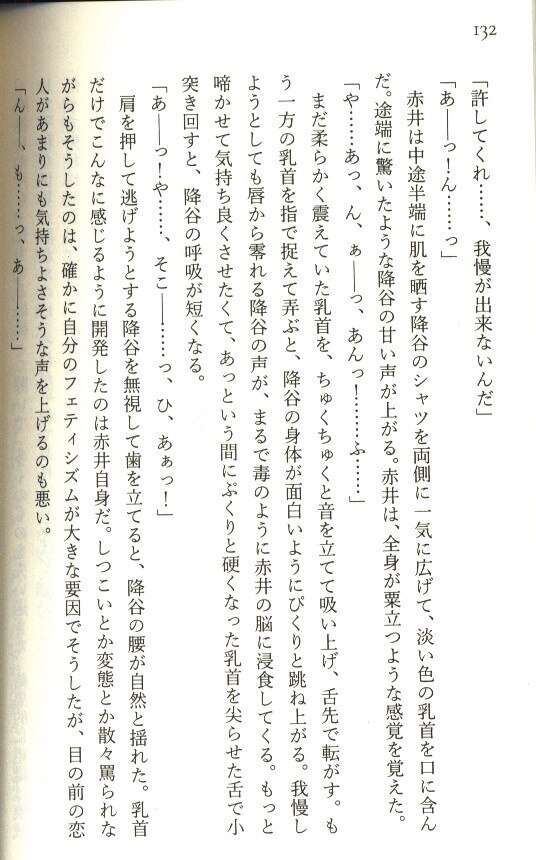 132
「許してくれ……、我慢が出来ないんだ」
「あ――っ！ん……っ」
赤井は中途半端に肌を晒す降谷のシャツを両側に一気に広げて、淡い色の乳首を口に含ん
だ。途端に驚いたような降谷の甘い声が上がる。赤井は、全身が粟立つような感覚を覚えた。
「や……あっ、ん、ぁ――っ、あんっ！………ふ……」
まだ柔らかく震えていた乳首を、ちゅくちゅくと音を立てて吸い上げ、舌先で転がす。も
う一方の乳首を指で捉えて弄ぶと、降谷の身体が面白いようにぴくりと跳ね上がる。我慢し
ようとしても唇から零れる降谷の声が、まるで毒のように赤井の脳に浸食してくる。もっと
啼かせて気持ち良くさせたくて、あっという間にぷくりと硬くなった乳首を尖らせた舌で小
突き回すと、降谷の呼吸が短くなる。
「あ――っ！や……、そこ――……っ、ひ、あぁっ！」
肩を押して逃げようとする降谷を無視して歯を立てると、降谷の腰が自然と揺れた。乳首
だけでこんなに感じるように開発したのは赤井自身だ。しつこいとか変態とか散々罵られな
がらもそうしたのは、確かに自分のフェティシズムが大きな要因でそうしたが、目の前の恋
人があまりにも気持ちよさそうな声を上げるのも悪い。
「ん――、も……っ、あ――……」